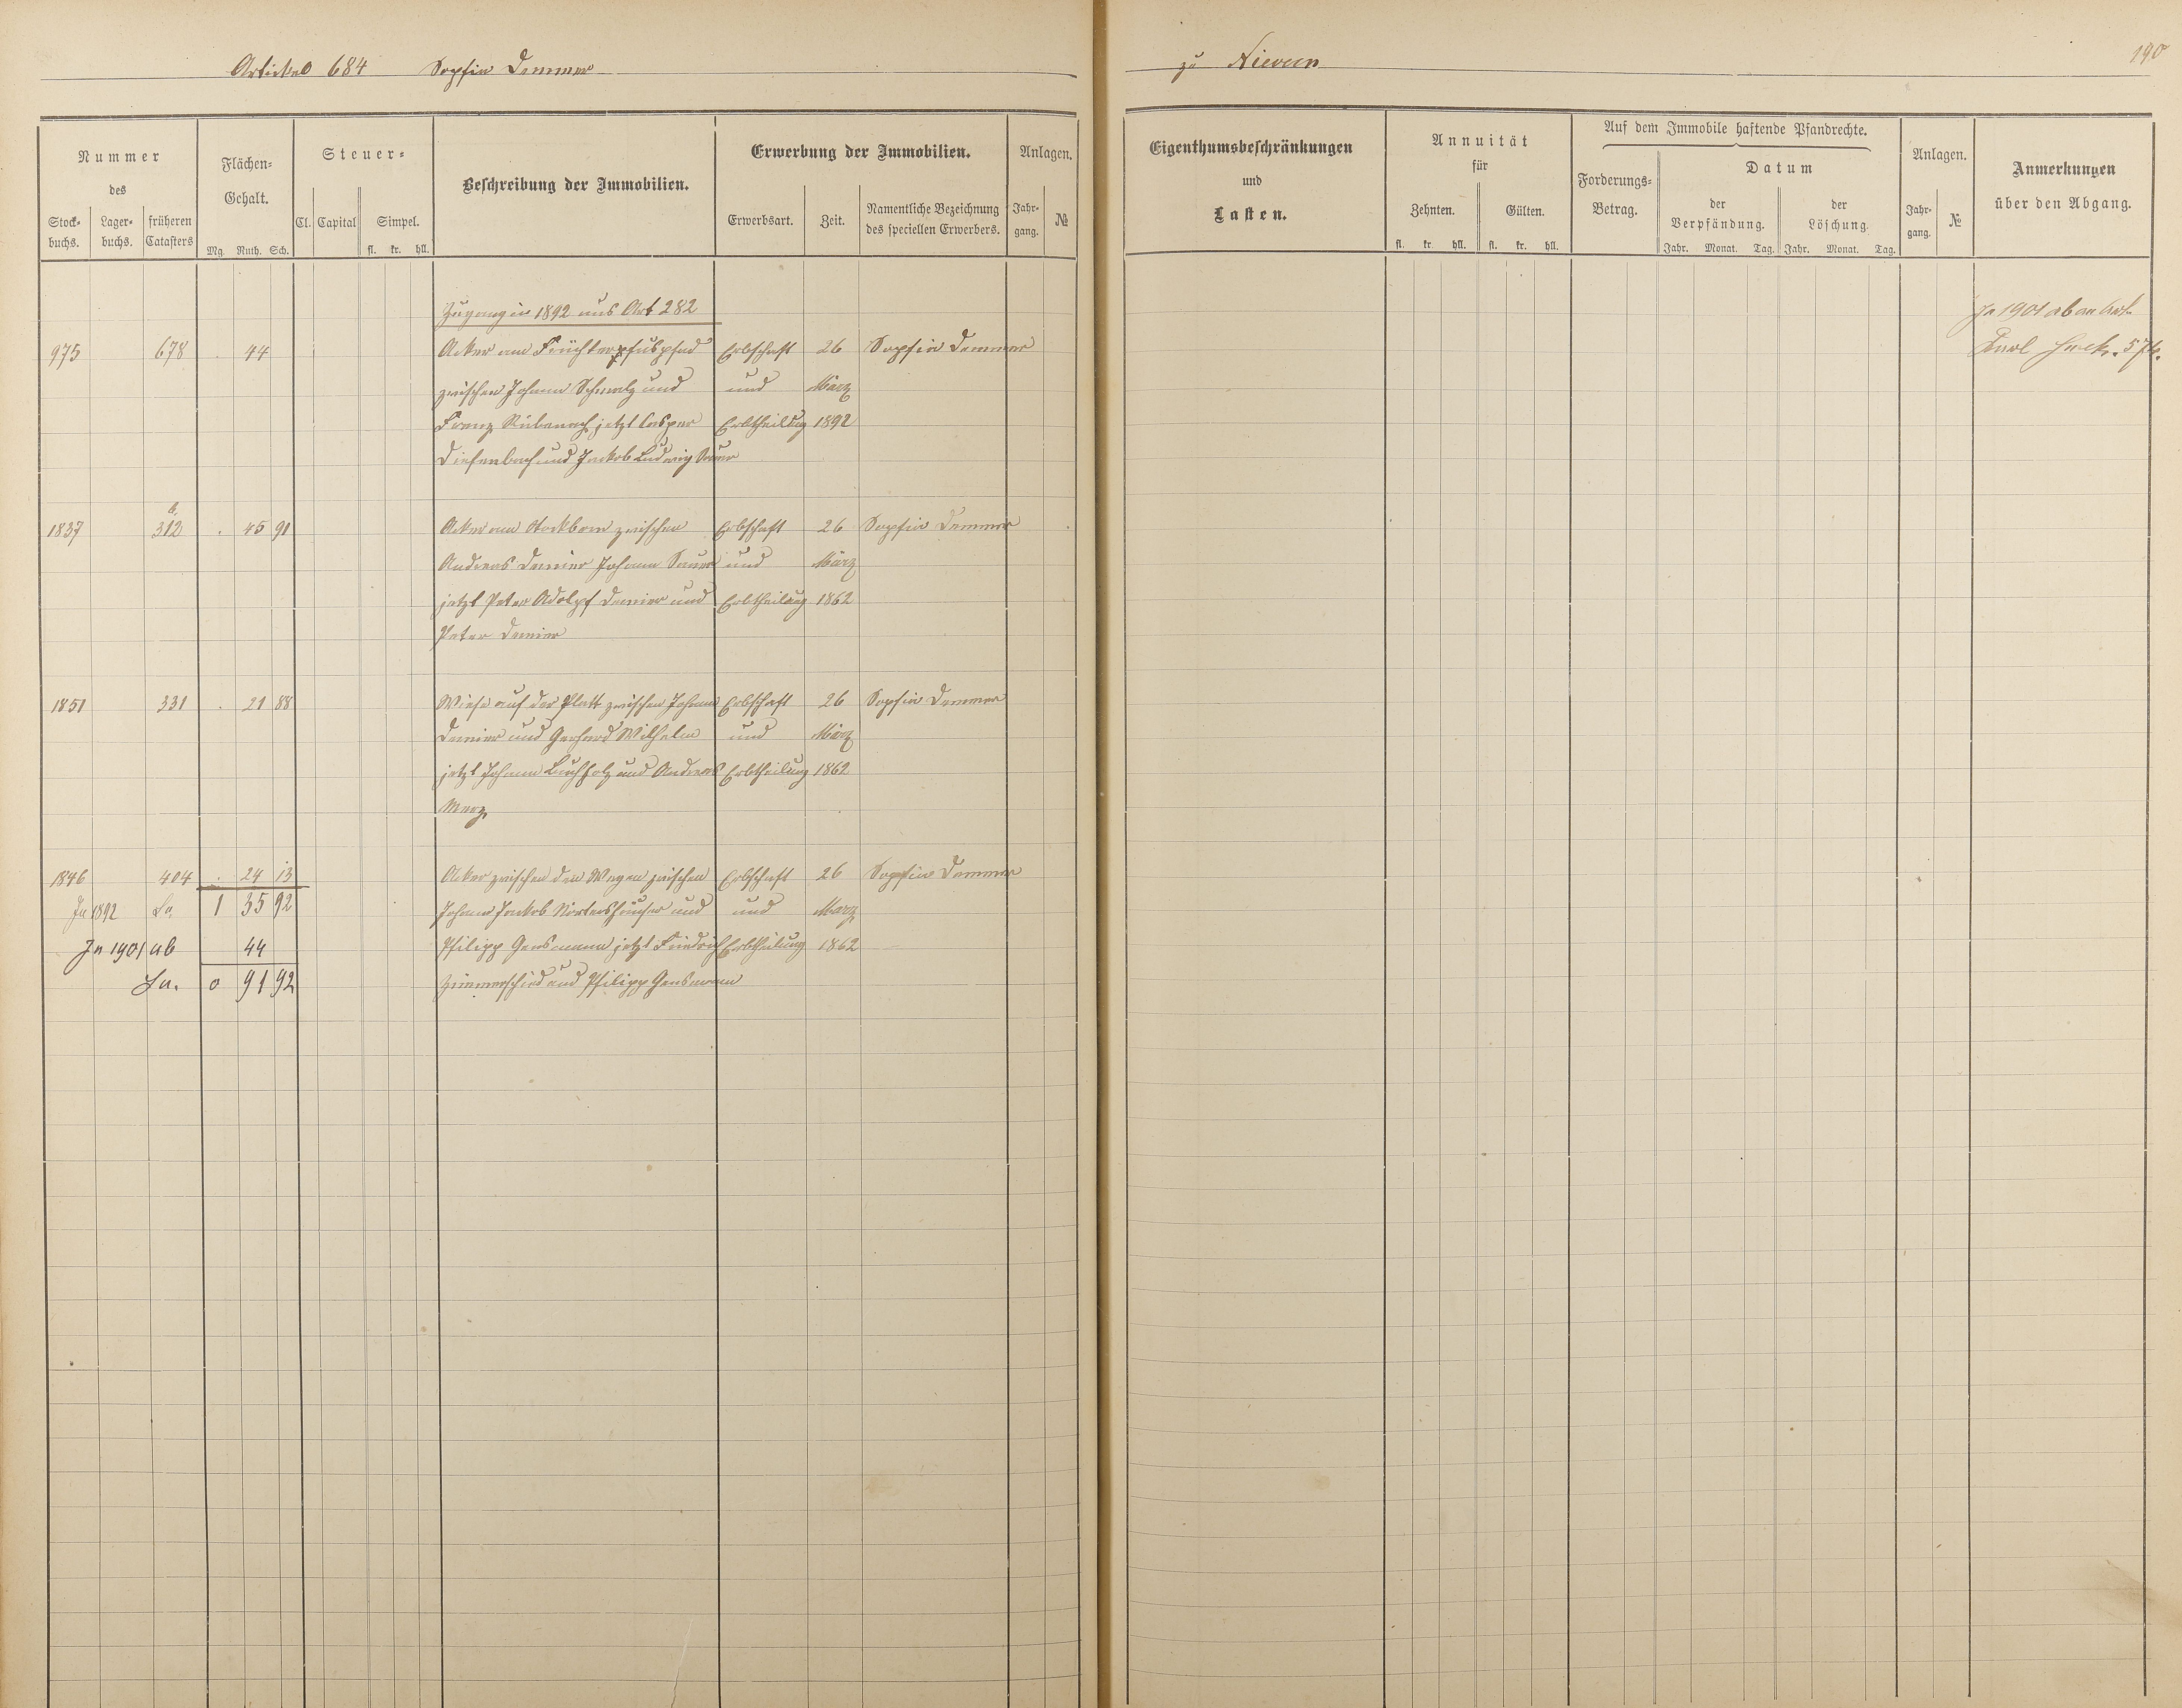 Artickel 684 Sophia Demmer
zu Nievern
190
Nummer
des
Stock-buchs.
Lager-buchs.
früheren Catasters
Flächen-Gehalt.
Mg. Ruth. Sch.
Steuer-
Cl. Capital
Simpel.
fl. kr. hll.
Beschreibung der Immobilien.
Erwerbung der Immobilien.
Erwerbsart.
Zeit.
Namentliche Bezeichnung
des speciellen Erwerbers.
Anlagen.
Jahr-gang.
№
Eigenthumsbeschränkungen
und
Lasten.
Annuität
für
Zehnten.
Gülten.
fl. kr. hll. fl. kr. hll.
Auf dem Immobile haftende Pfandrechte.
Forderungs-Betrag.
Datum
der Verpfändung.
der Löschung.
Jahr. Monat. Tag. Jahr. Monat. Tag.
Anlagen.
Jahr-gang.
№
Anmerkungen
über den Abgang.
Zugang in 1892 aus Art 282
975 678 . 44 Acker am zwischen Erbschaft 26 Sophia Demmer
zwischen Johann Schmalz und und März
Franz jetzt Casper Erbtheilung 1892
Diefenbach und Jackob Ludwig Sauer
1837 312 . 45 91 Acker am Stockborn zwischen Erbschaft 26 Sophia Demmer
Andreas Johann Sauer und März
jetzt Peter Adolph und Erbtheilung 1862
Peter
1851 331 . 21 88 Wiese auf der Platt zwischen Johann Erbschaft 26 Sophia Demmer
und Gerhard Wilhelm und März
jetzt Johann Buchholz und Andreas Erbtheilung 1862
Merz
1846 404 . 24 13 Acker zwischen den Wegen zwischen Erbschaft 26 Sophia Demmer
In 1892 Sa. 1 35 92 Johann Jackob Nörtershäuser und und März
In 1901 ab 44 Philipp Gensmann jetzt Friedrich Erbtheilung 1862
Sa. 0 91 92 Zimmerschied und Philipp Gensmann
In 1901 ab an Art.